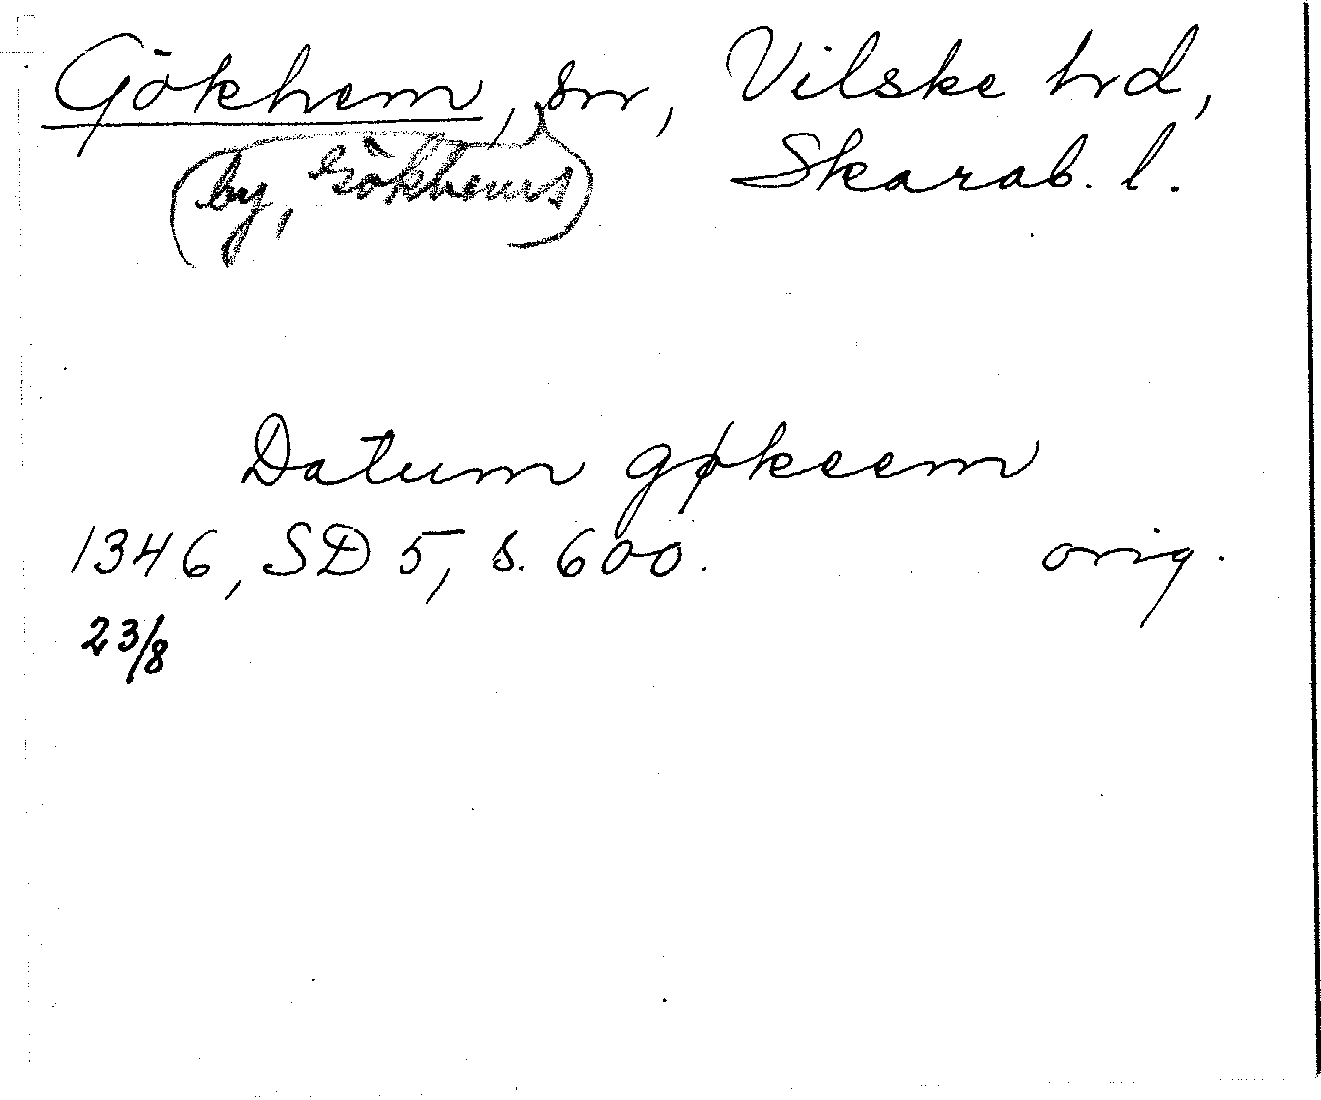 Gökhem, sn, Vilske hd,
(by, Gökhems) Skarab. l.
Datum gøkeem
1346, SD 5, s. 600. orig.
23/8